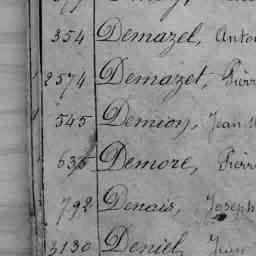 354 Demazel, Anto
2574 Demazet, Pierr
545 Demion, Jean
635 Demore, Pierr
792 Denais, Joseph
3130 Deniel, Jean